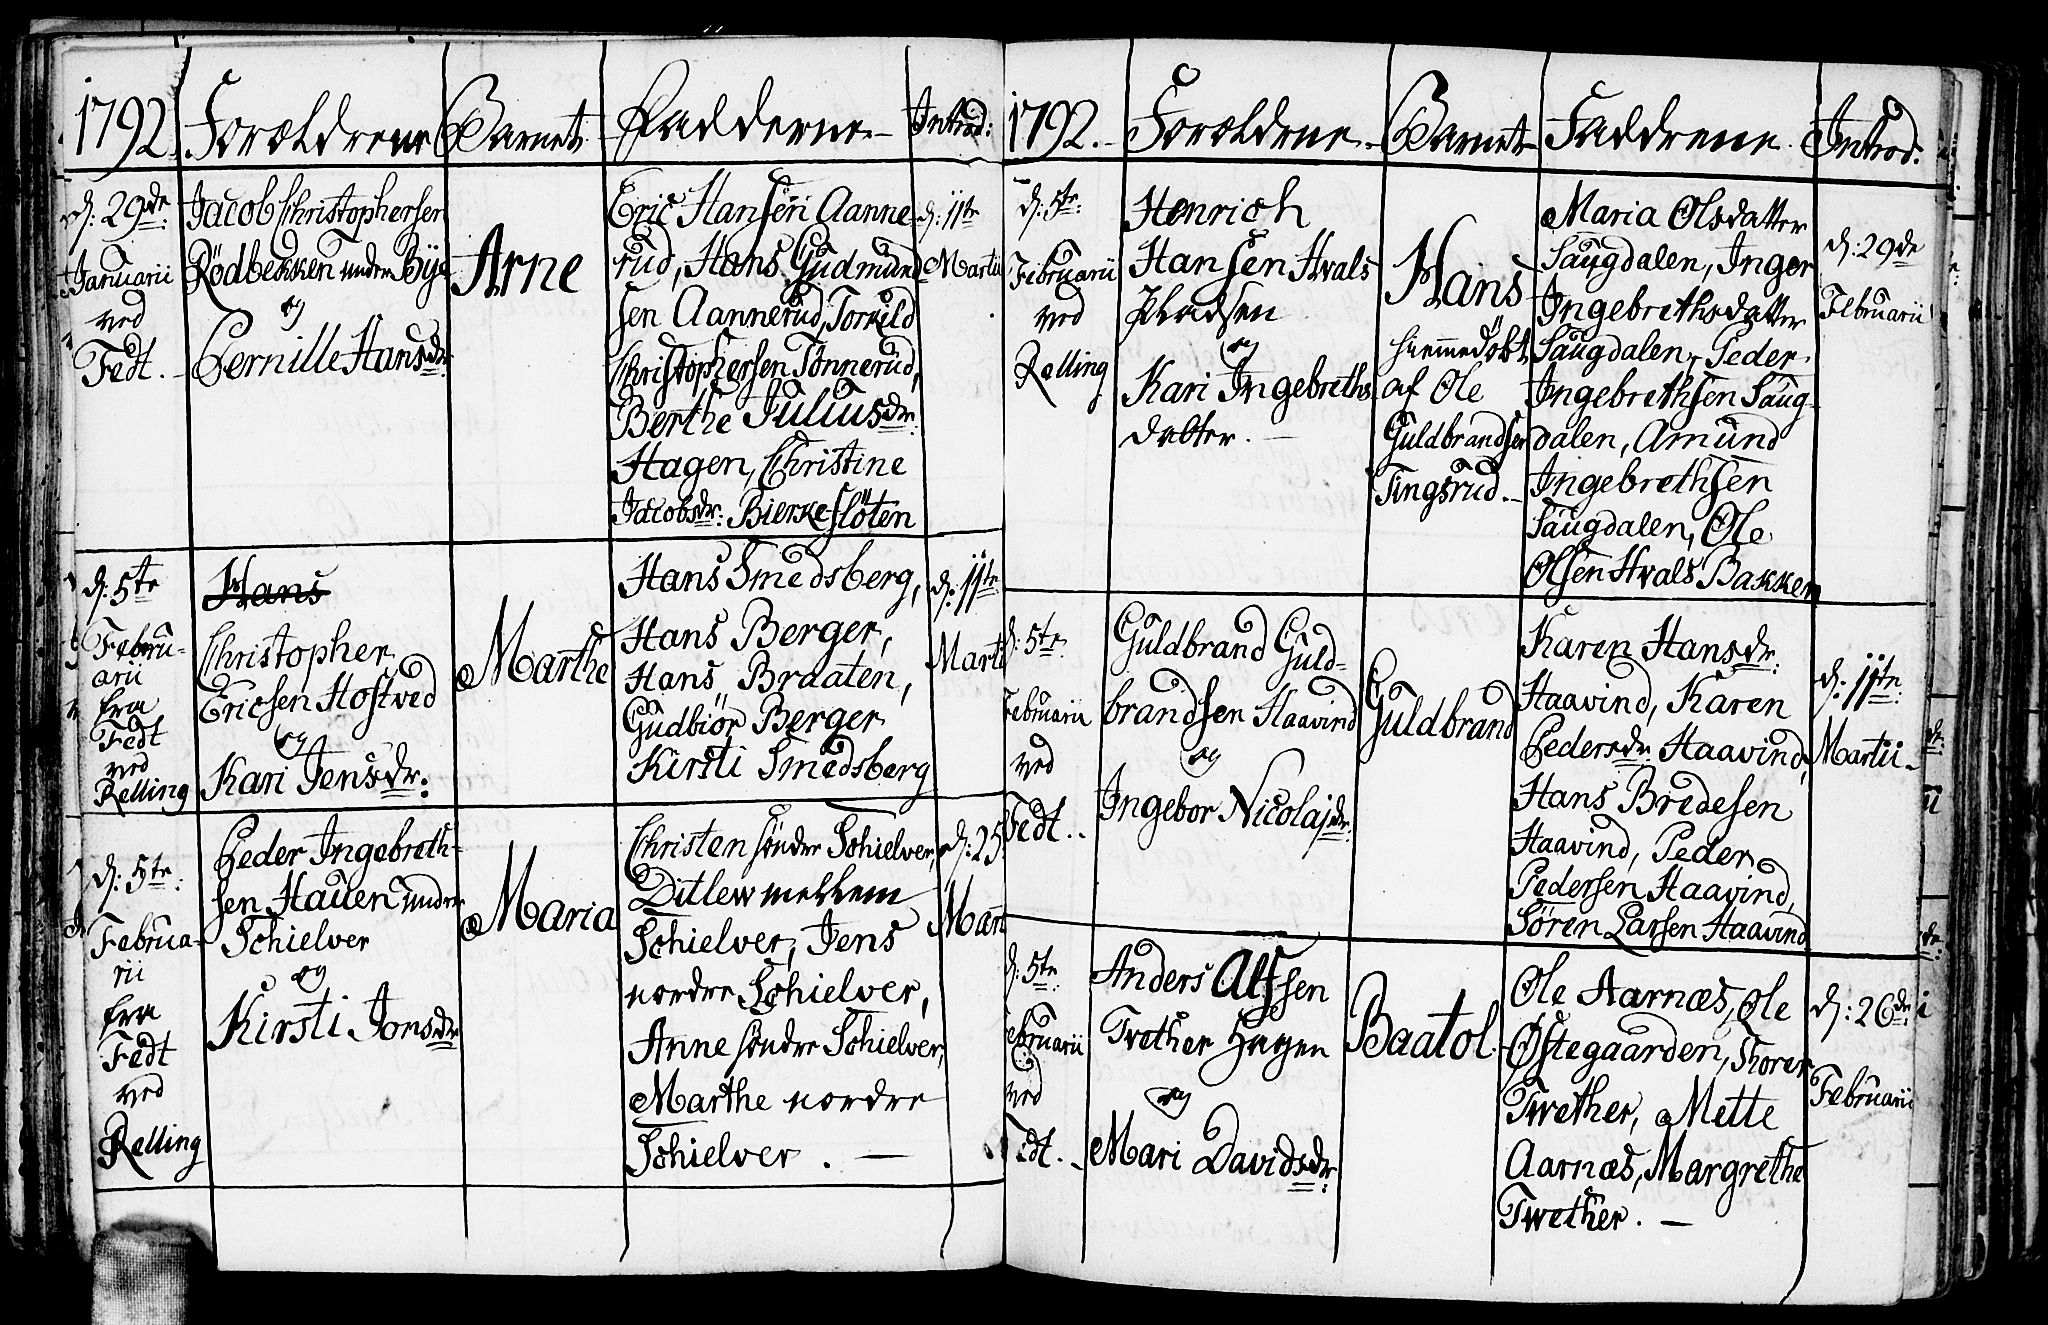 1792. Forældrene Barnet. Fadderne. Introd:
d: 29de
Januarii
ved
Fedt.
Jacob Christophersen
Rödbekken under Bye
og
Pernille Hansdr:
Arne
Eric Hansen Aanne-
rud, Hans Gudmund
sen Aannerud, Torkild
Christophersen Tönnerud,
Berthe Juliusdr:
Hagen, Christine
Jacobsdr: Bierkeslöten
d: 11te
Martii
d: 5te
Febru-
arii
fra
Fedt
ved
Relling
Hans
Christopher
Ericsen Hostved
og
Kari Jensdr:
Marthe
Hans Smedsberg,
Hans Berger,
Hans Braaten,
Gudbiör Berger
Kirsti Smedsberg
d: 11te
Marti
d: 5te:
Februa-
rii
fra
Fedt
ved
Relling
Peder Ingebreth-
sen Hauen under
Schielver
og
Kirsti Jonsdr
Maria
Christen söndre Schielver,
Ditlew mellem
Schielver, Jens
nordre Schielver,
Anne söndre Schielver,
Marthe nordre
Schielver. —
d: 25
Mart
1792. Forældrene. Barnet Faddrene. Introd:
d: 5te:
Februarii
ved
Relling
Henrich
Hansen Hvals
Pladsen
og
Kari Ingebreths
datter. —
Hans
hiemmedöbt
af Ole
Guldbrandsen
Tingsrud.
Maria Olsdatter
Saugdalen, Inger
Ingebrethsdatter
Saugdalen, Peder
Ingebrethsen Saug-
dalen, Amund
Ingebrethsen
Saugdalen, Ole
Olsen Hvals Bakken
d: 29de
Februarii
d: 5te
Februarii
ved
Fedt.
Guldbrand Guld-
brandsen Haavind
og
Ingebor Nicolajdr:
Guldbrand
Karen Hansdr:
Haavind, Karen
Pedersdr: Haavind,
Hans Bredesen
Haavind, Peder
Pedersen Haavind,
Sören Larsen Haavind
d: 11te:
Martii.
d: 5te
Februarii
ved
Fedt.
Anders Alfsen
Twether Hagen
og
Mari Davidsdr:
Baatol.
Ole Aarnæs, Ole
Östegaarden, Thorer
Twether, Mette
Aarnæs, Margrethe
Twether. —
d: 26de
Februarii